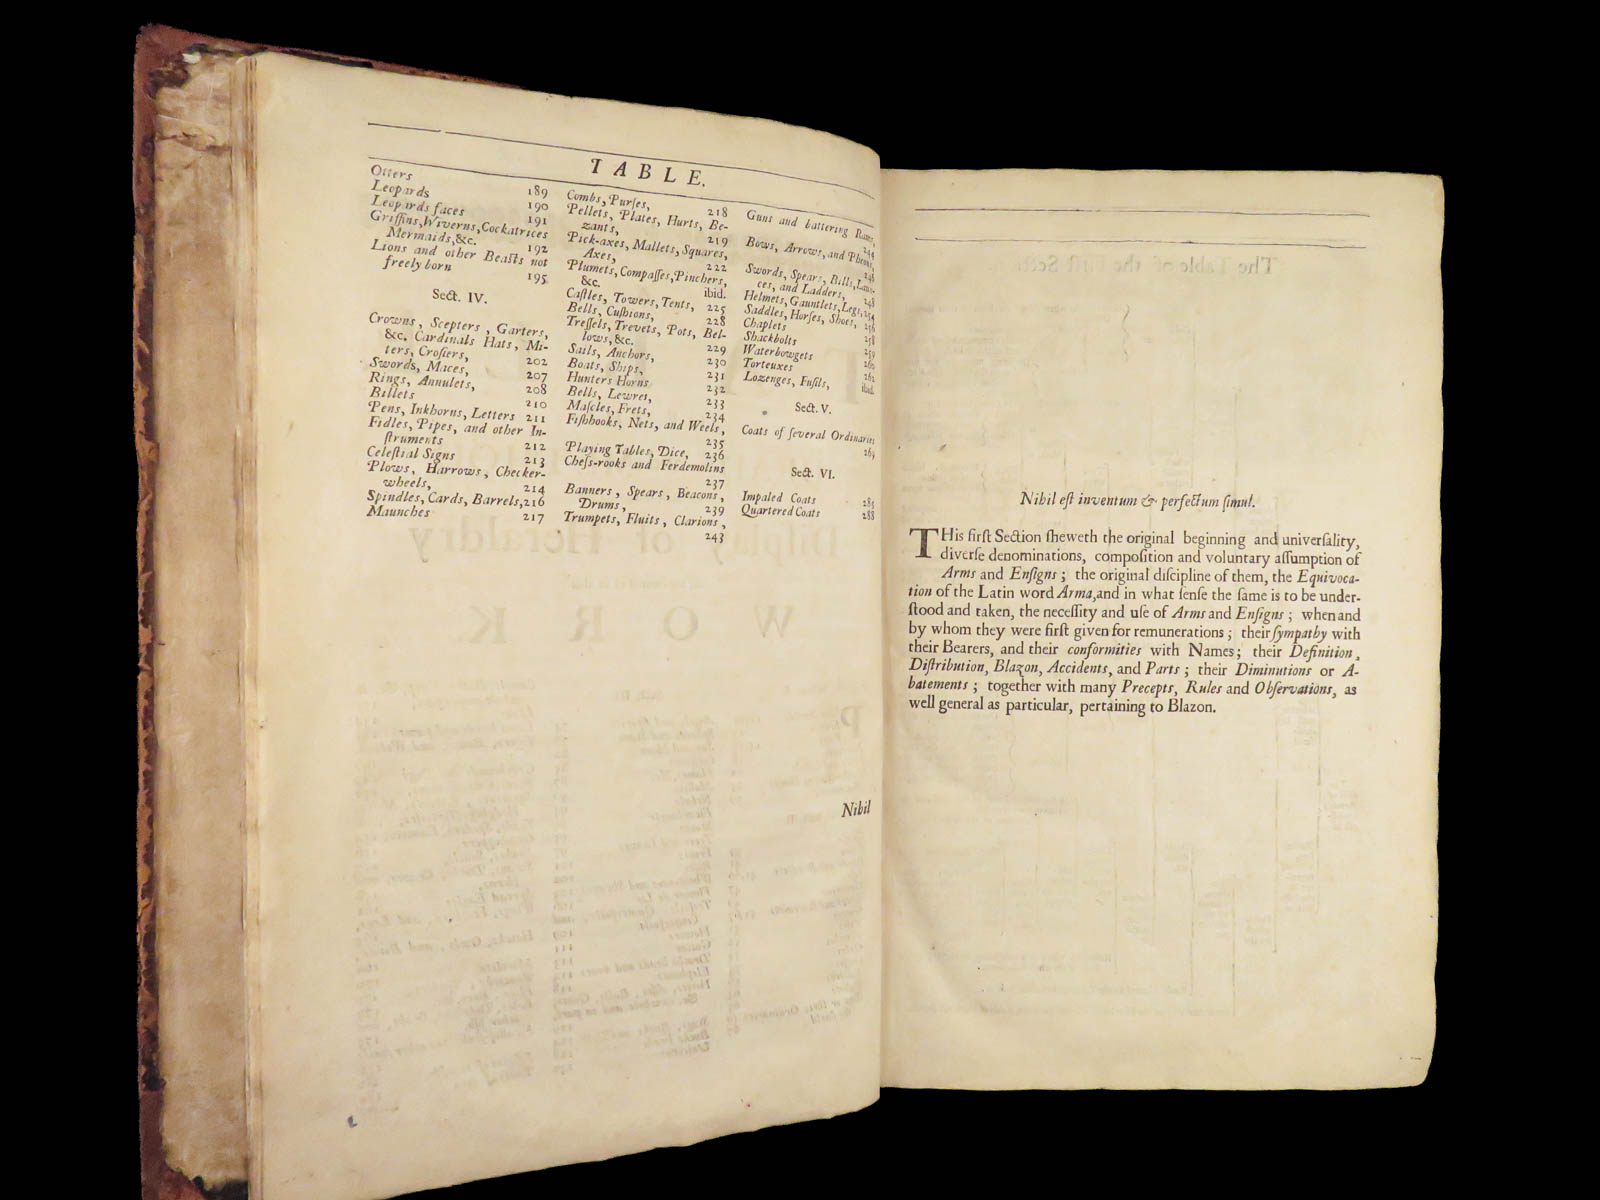 TABLE.
Otters 189
Leopards 190
Leopards faces 191
Griffins, Wiverns, Cockatrices
Mermaids, &c. 192
Lions and other Beaſts not
freely born 195
Sect. IV.
Crowns, Scepters, Garters,
&c. Cardinals Hats, Mi-
ters, Croſiers, 202
Swords, Maces, 207
Rings, Annulets, 208
Billets 210
Pens, Inkhorns, Letters 211
Fidles, Pipes, and other In-
ſtruments 212
Celeſtial Signs 213
Plows, Harrows, Checker-
wheels, 214
Spindles, Cards, Barrels, 216
Maunches 217
Combs, Purſes, 218
Pellets, Plates, Hurts, Be-
zants, 219
Pick-axes, Mallets, Squares,
Axes, 222
Plumets, Compaſſes, Pinchers,
&c. ibid.
Caſtles, Towers, Tents, 225
Bells, Cuſhions, 228
Treſſels, Trevets, Pots, Bel-
lows, &c. 229
Sails, Anchors, 230
Boats, Ships, 231
Hunters Horns 232
Bells, Lewres, 233
Maſcles, Frets, 234
Fiſhhooks, Nets, and Weels,
235
Playing Tables, Dice, 236
Cheſs-rooks and Ferdemolins
237
Banners, Spears, Beacons,
Drums, 239
Trumpets, Fluits, Clarions,
243
Guns and battering Rams,
244
Bows, Arrows, and Pheons,
246
Swords, Spears, Bills, Laun-
ces, and Ladders, 248
Helmets, Gauntlets, Legs, 254
Saddles, Horſes, Shoes, 256
Chaplets
Shackbolts 258
Waterbowgets 259
Torteuxes 260
Lozenges, Fuſils, ibid.
Sect. V.
Coats of ſeveral Ordinaries
Sect. VI.
Impaled Coats 285
Quartered Coats 288
Nihil
Nihil eſt inventum & perfectum ſimul.
THis firſt Section ſheweth the original beginning and univerſality,
diverſe denominations, compoſition and voluntary aſſumption of
Arms and Enſigns; the original diſcipline of them, the Equivoca-
tion of the Latin word Arma, and in what ſenſe the ſame is to be under-
ſtood and taken, the neceſſity and uſe of Arms and Enſigns; when and
by whom they were firſt given for remunerations; their ſympathy with
their Bearers, and their conformities with Names; their Definition,
Diſtribution, Blazon, Accidents, and Parts; their Diminutions or A-
batements; together with many Precepts, Rules and Obſervations, as
well general as particular, pertaining to Blazon.